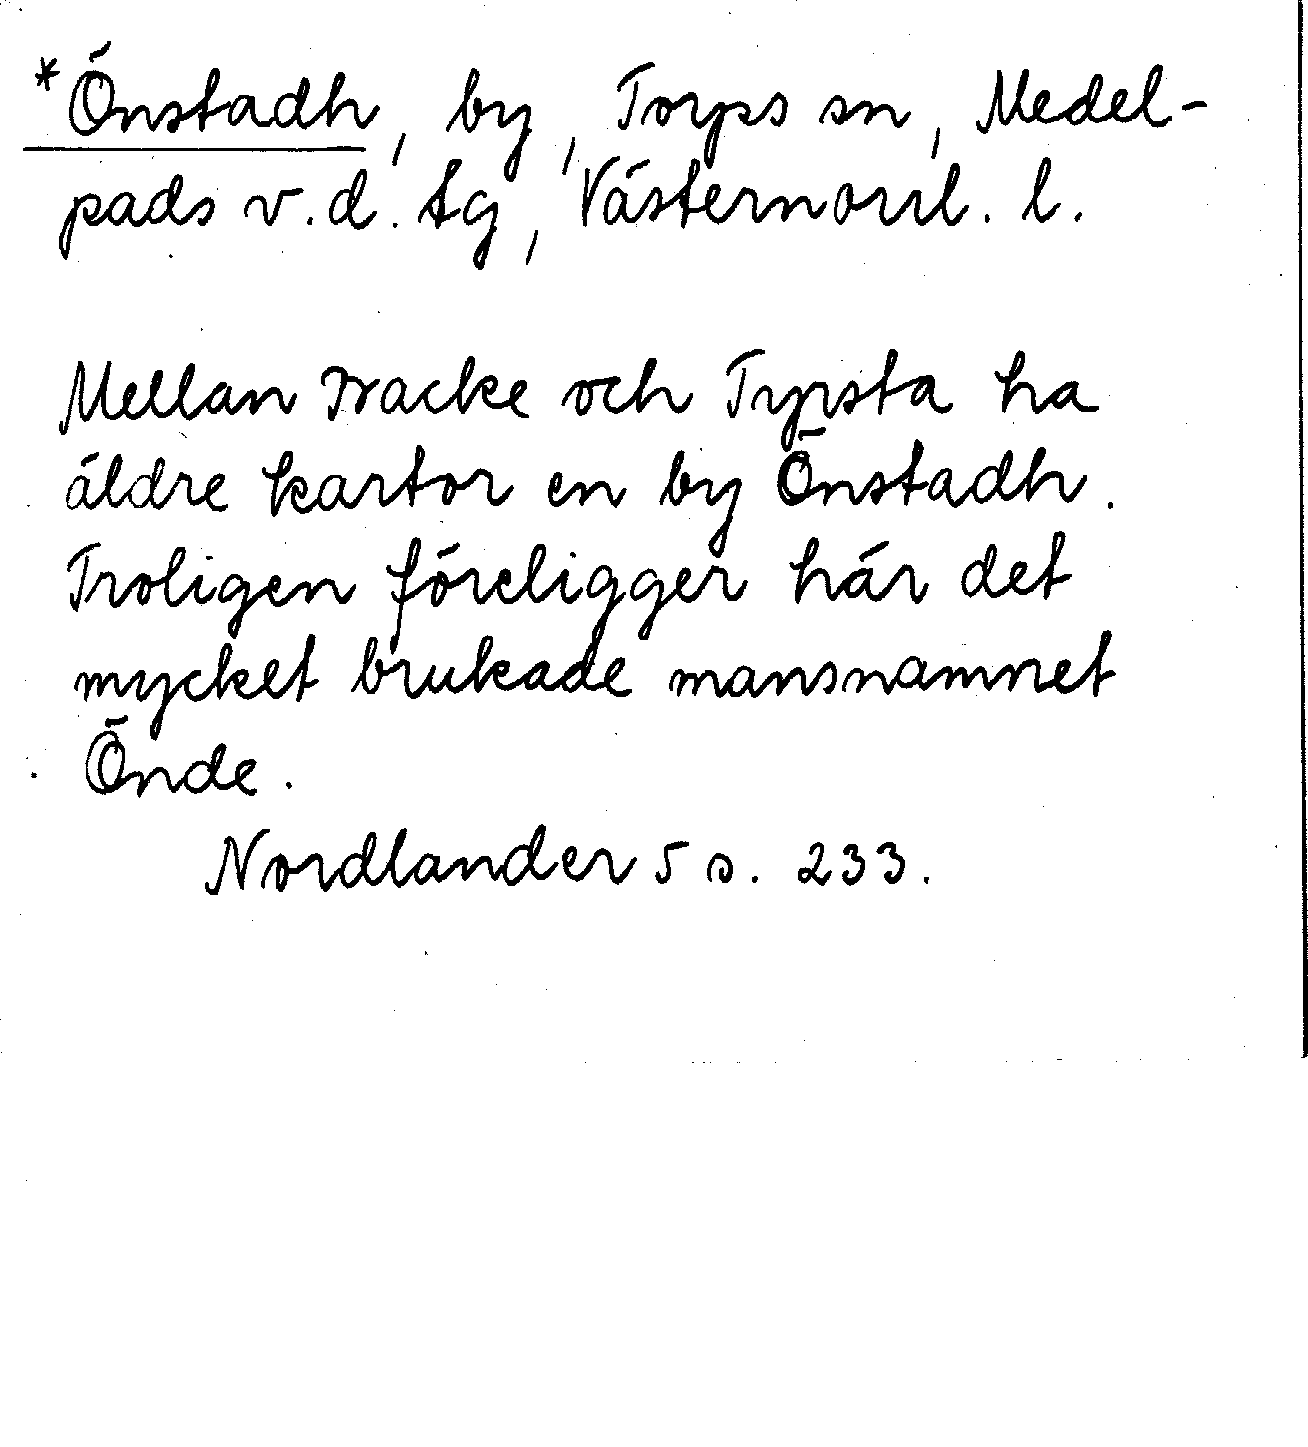 *Önstadh, by, Torps sn, Medel-
pads v.d. tg, Västernorrl. l.
Mellan Wacke och Typsta ha
äldre kartor en by Önstadh.
Troligen föreligger här det
mycket brukade mansnamnet
Önde.
Nordlander 5 s. 233.